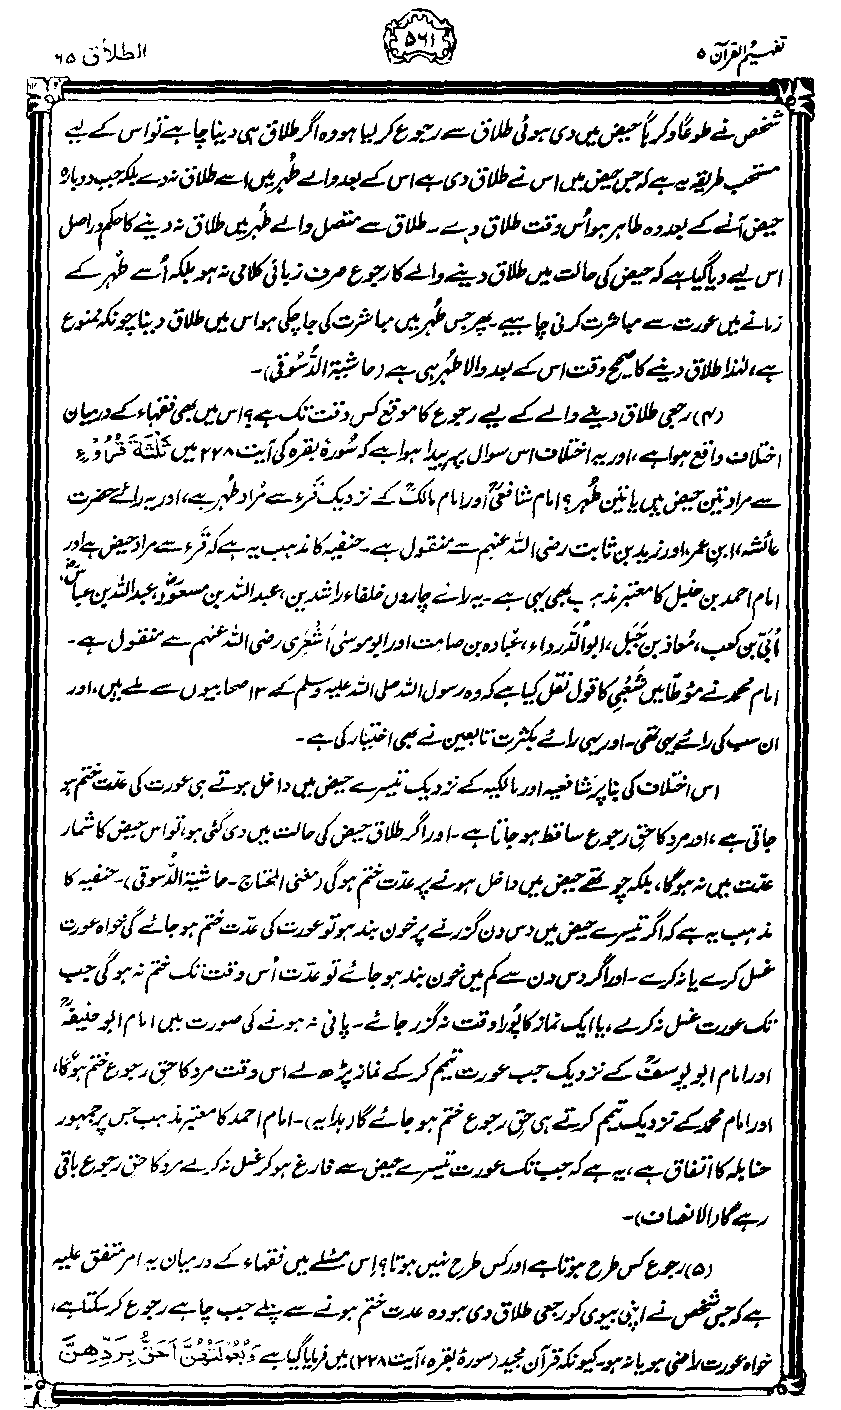 تفہیم القرآن ۵
۵۶۱
الطلاق ۶۵
شخص نے طوعًا وکرہًا حیض میں دی ہوئی طلاق سے رجوع کر لیا ہو وہ اگر طلاق ہی دینا چاہے تو اس کے لیے
مستحب طریقہ یہ ہے کہ جس حیض میں اس نے طلاق دی ہے اس کے بعد والے طُہر میں اسے طلاق نہ دے بلکہ جب دوبارہ
حیض آنے کے بعد وہ طاہر ہو اُس وقت طلاق دے۔ طلاق سے متصل والے طُہر میں طلاق نہ دینے کا حکم دراصل
اس لیے دیا گیا ہے کہ حیض کی حالت میں طلاق دینے والے کا رجوع صرف زبانی کلامی نہ ہو بلکہ اُسے طُہر کے
زمانے میں عورت سے مباشرت کرنی چاہیے۔ پھر جس طُہر میں مباشرت کی جا چکی ہو اس میں طلاق دینا چونکہ ممنوع
ہے، لہٰذا طلاق دینے کا صحیح وقت اس کے بعد والا طُہر ہی ہے (حاشیۃ الدُّسوقی)۔
(۴) رجعی طلاق دینے والے کے لیے رجوع کا موقع کس وقت تک ہے؟ اس میں بھی فقہاء کے درمیان
اختلاف واقع ہوا ہے، اور یہ اختلاف اس سوال پر پیدا ہوا ہے کہ سُورۂ بقرہ کی آیت ۲۲۸ میں ثَلٰثَةَ قُرُوْٓءٍ
سے مراد تین حیض ہیں یا تین طُہر؟ امام شافعیؒ اور امام مالکؒ کے نزدیک قَرء سے مُراد طُہر ہے، اور یہ رائے حضرت
عائشہ، ابن عمر، اور زید بن ثابت رضی اللہ عنہم سے منقول ہے۔ حنفیہ کا مذہب یہ ہے کہ قَرء سے مراد حیض ہے اور
امام احمد بن حنبل کا معتبر مذہب بھی یہی ہے۔ یہ رائے چاروں خلفاء راشدین، عبداللہ بن مسعودؓ، عبداللہ بن عباسؓ،
اُبَیّ بن کعب، مُعاذ بن جَبَل، ابوالدَّرداء، عُبادہ بن صامت اور ابو موسیٰ اَشْعَری رضی اللہ عنہم سے منقول ہے۔
امام محمد نے مؤطا میں شَعْبِی کا قول نقل کیا ہے کہ وہ رسول اللہ صلی اللہ علیہ وسلم کے ۱۳ صحابیوں سے ملے ہیں، اور
ان سب کی رائے یہی تھی۔ اور یہی رائے بکثرت تابعین نے بھی اختیار کی ہے۔
اس اختلاف کی بنا پر شافعیہ اور مالکیہ کے نزدیک تیسرے حیض میں داخل ہوتے ہی عورت کی عدّت ختم ہو
جاتی ہے، اور مرد کا حقِ رجوع ساقط ہو جاتا ہے۔ اور اگر طلاق حیض کی حالت میں دی گئی ہو، تو اس حیض کا شمار
عدّت میں نہ ہوگا، بلکہ چوتھے حیض میں داخل ہونے پر عدّت ختم ہوگی (مغنی المحتاج۔ حاشیۃ الدُّسوقی)۔ حنفیہ کا
مذہب یہ ہے کہ اگر تیسرے حیض میں دس دن گزرنے پر خون بند ہو تو عورت کی عدّت ختم ہو جائے گی خواہ عورت
غسل کرے یا نہ کرے۔ اور اگر دس دن سے کم میں خون بند ہو جائے تو عدّت اُس وقت تک ختم نہ ہوگی جب
تک عورت غسل نہ کرلے، یا ایک نماز کا پُورا وقت نہ گزر جائے۔ پانی نہ ہونے کی صورت میں امام ابو حنیفہؒ
اور امام ابو یوسفؒ کے نزدیک جب عورت تیمم کر کے نماز پڑھ لے اس وقت مرد کا حقِ رجوع ختم ہوگا،
اور امام محمد کے نزدیک تیمم کرتے ہی حقِ رجوع ختم ہو جائے گا (ہدایہ)۔ امام احمد کا معتبر مذہب جس پر جمہور
حنابلہ کا اتفاق ہے، یہ ہے کہ جب تک عورت تیسرے حیض سے فارغ ہو کر غسل نہ کرلے مرد کا حقِ رجوع باقی
رہے گا (الانصاف)۔
(۵) رجوع کس طرح ہوتا ہے اور کس طرح نہیں ہوتا؟ اِس مسئلے میں فقہاء کے درمیان یہ امر متفق علیہ
ہے کہ جس شخص نے اپنی بیوی کو رجعی طلاق دی ہو وہ عدت ختم ہونے سے پہلے جب چاہے رجوع کر سکتا ہے،
خواہ عورت راضی ہو یا نہ ہو۔ کیونکہ قرآن مجید (سورۂ بقرہ، آیت ۲۲۸) میں فرمایا گیا ہے وَبُعُوْلَتُهُنَّ اَحَقُّ بِرَدِّهِنَّ